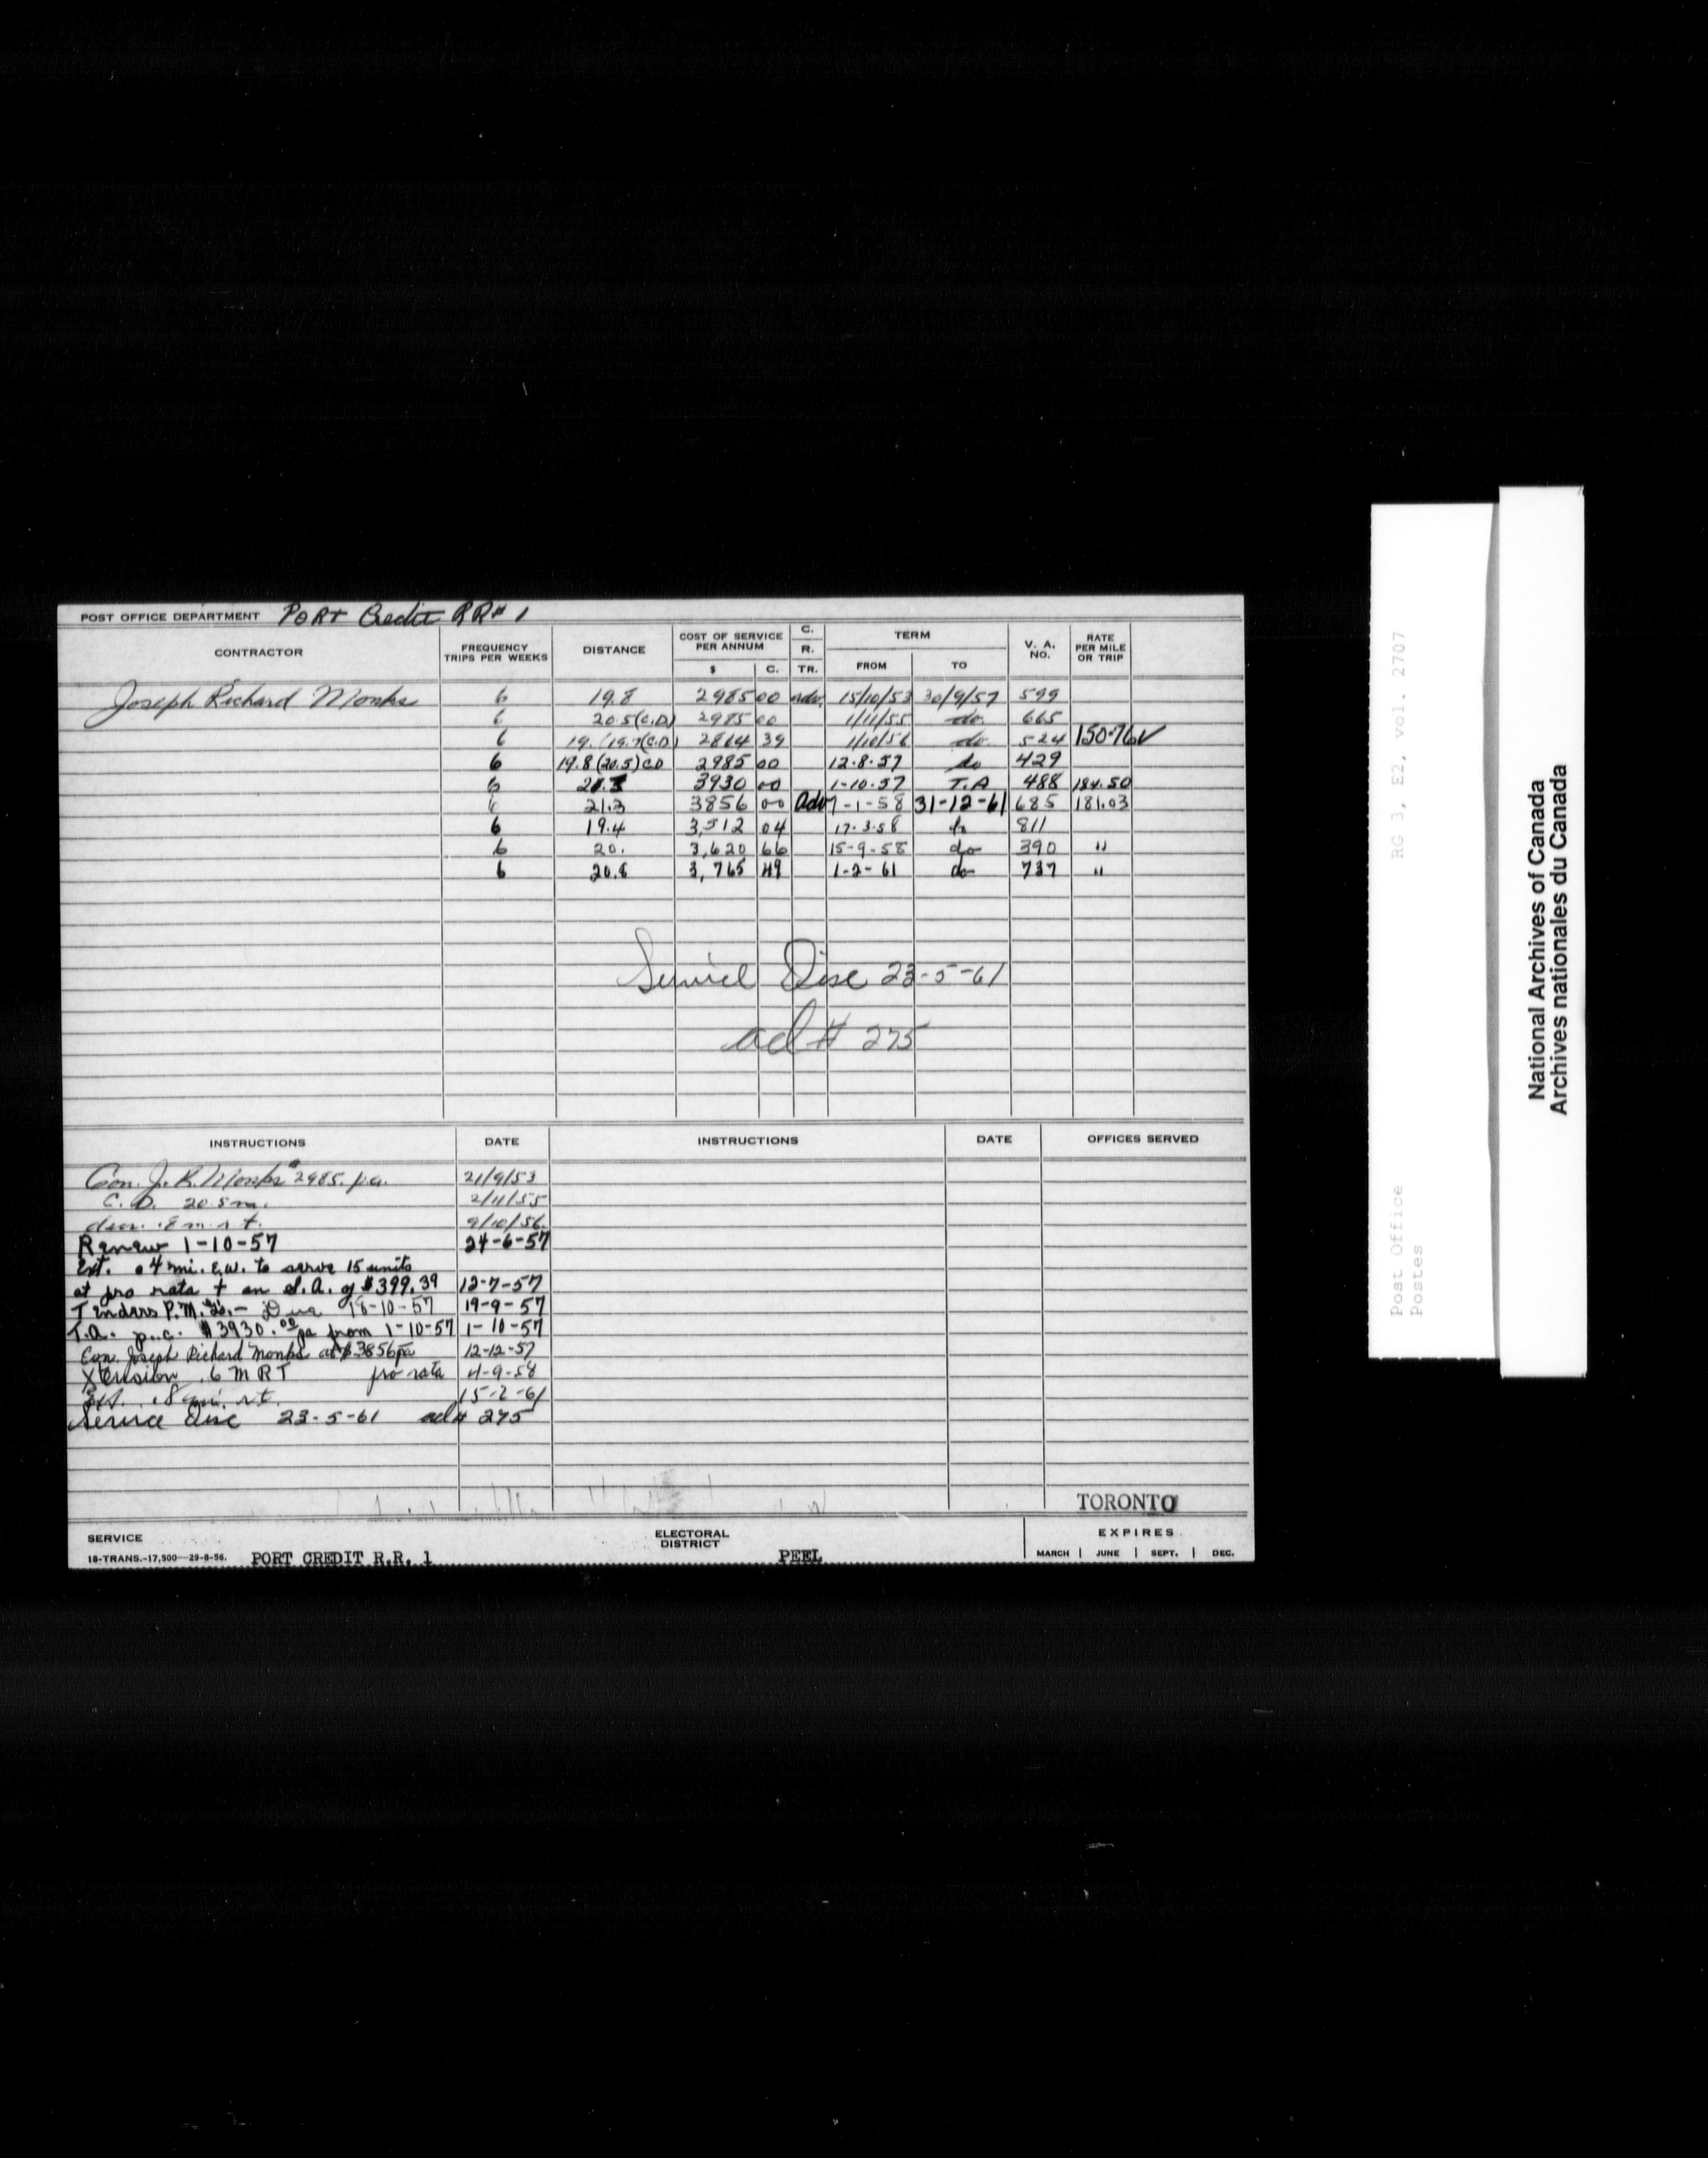 POST OFFICE DEPARTMENT PORT Credit RR# 1
CONTRACTOR FREQUENCY TRIPS PER WEEKS DISTANCE COST OF SERVICE PER ANNUM $ C. C. R. TR. TERM FROM TO V. A. NO. RATE PER MILE OR TRIP
Joseph Richard Monks 6 19.8 2985 00 adv. 15/10/53 30/9/57 599
6 20.5 (C.D) 2985 00 1/11/55 do. 665
6 19. (19.7(C.D) 2864 39 1/10/56 do. 524 150.76 ✓
6 19.8 (20.5) CD 2985 00 12-8-57 do 429
6 21.3 3930 00 1-10-57 T.A 488 184.50
6 21.3 3856 00 Adv 7-1-58 31-12-61 685 181.03
6 19.4 3,512 04 17-3-58 do 811
6 20. 3,620 66 15-9-58 do 390 "
6 20.8 3,765 49 1-2-61 do 737 "
Service Disc 23-5-61
ad # 275
INSTRUCTIONS DATE INSTRUCTIONS DATE OFFICES SERVED
Con. J. R. Monks $2985. p.a. 21/9/53
C. D. 20.5 m. 2/11/55
decr. .8 m r.t. 9/10/56
Renew 1-10-57 24-6-57
Ext. .4 mi. e.w. to serve 15 units
at pro rata + an S.A. of $399.39 12-7-57
Tenders P.M. Due 18-10-57 19-9-57
T.A. p.c. $3930.00 pa from 1-10-57 1-10-57
Con. Joseph Richard Monks at $3856 pa 12-12-57
Xtension .6 M R T pro rata 4-9-58
Ext. .8 mi. r.t. 15-2-61
Service Disc 23-5-61 ad # 275
TORONTO
SERVICE ELECTORAL DISTRICT EXPIRES
18-TRANS.-17,500—29-8-56. PORT CREDIT R.R. 1 PEEL MARCH | JUNE | SEPT. | DEC.
Post Office RG 3, E2, vol. 2707
Postes
National Archives of Canada
Archives nationales du Canada